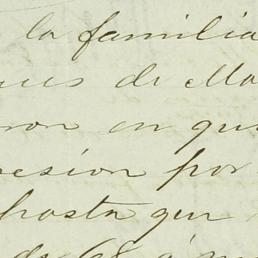 la familia
ues de Ma
ron en qu
resion por
hasta que
de 68 á